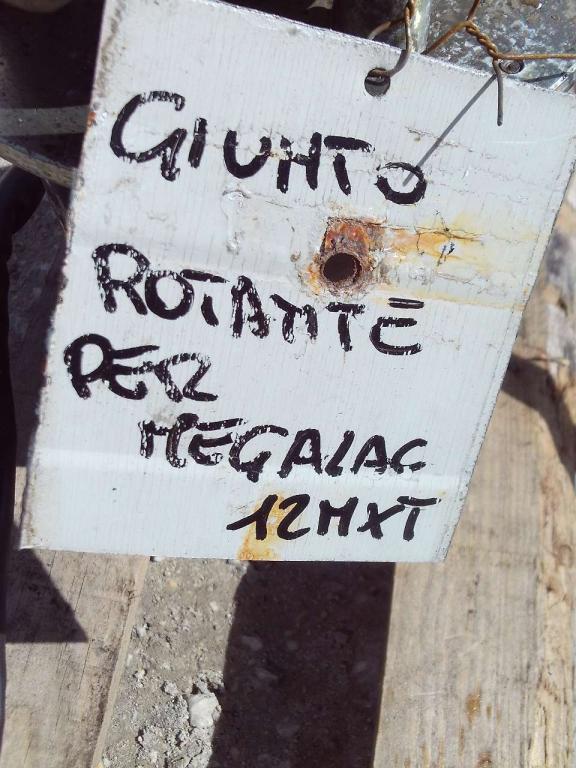 GIUNTO
ROTANTE
PER
MEGALAC
12MXT